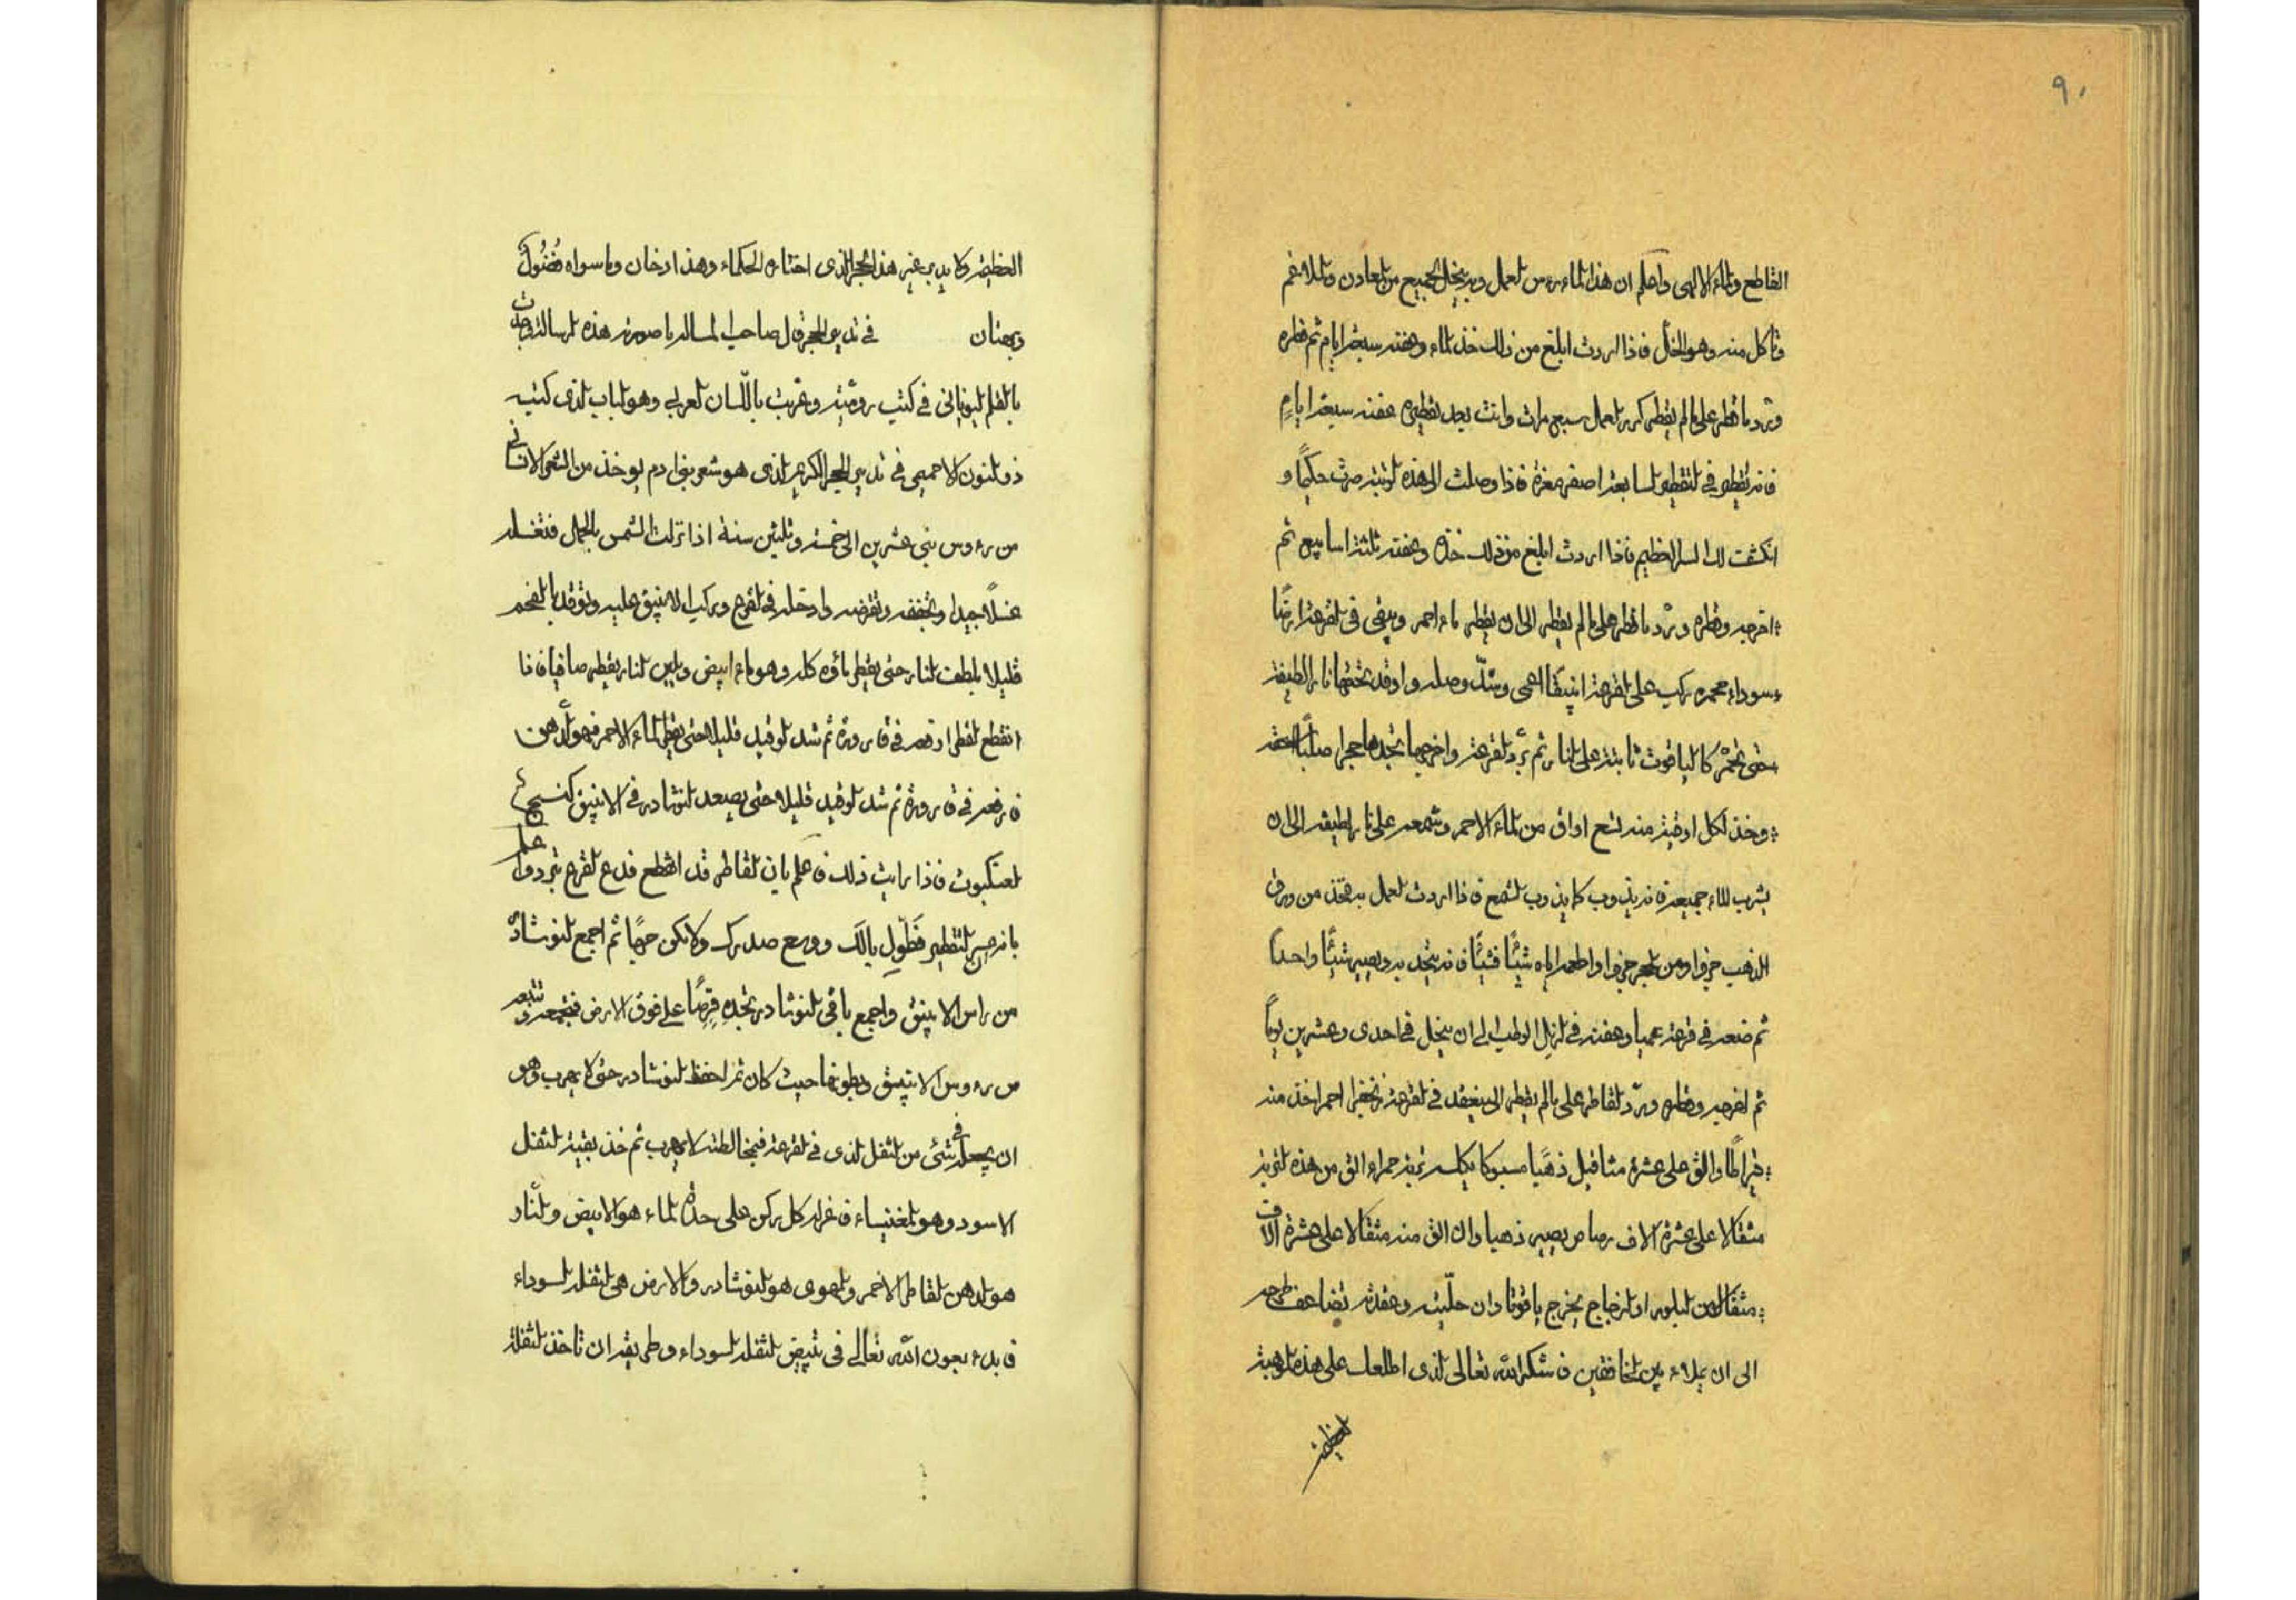 ٩٠
القاطع والماء الالهى واعلم ان هذا الماء رءوس العمل وبه ينحل الجميع من المعادن والملاغم
وتاكل منه وهو الخل فاذا اردت ابلغ من ذلك خذ الماء وعفنه سبعة ايام ثم قطره
وترد ما قطر على ما لم يقطر كرر العمل سبع مرات وانت بعد تقطيره عفنه سبعة ايام
فانه يقطر في التقطير السابعة اصفر فاذا وصلت الى هذه الرتبة صرت حكيما و
انكشفت لك السر العظيم فاذا اردت ابلغ من ذلك خذه وعفنه ثلثة اسابيع ثم
اخرجه وقطره ورُد ما قطر على ما لم يقطر الى ان يقطر ماء احمر ويبقى في القرعة ارضا
سوداء محمره ركب على القرعة انبيقا اعمى وشدّ وصله واوقد تحتها نارا لطيفة
حتى تحمر كالياقوت ثابتة على النار ثم برّد القرعة واخرجها تجدها حجرا صلبا
وخذ لكل اوقية منه تسع اواق من الماء الاحمر وشمعه على نار لطيفه الى ان
يشرب الماء جميعه فانه يذوب كما يذوب الشمع فاذا اردت العمل به فخذ من ورق
الذهب جزوا ومن الحجر جزوا واطعمه اياه شيئًا فشيئًا فانه يتحد به ويصير شيئًا واحدا
ثم ضعه في قرعة عميا وعفنه في الزبل الرطب الى ان ينحل في احدى وعشرين يوماً
ثم اخرجه وقطره وردّ القاطر على ما لم يقطر الى ينعقد في القرعة زنجفرا احمرا خذ منه
قيراطًا والق على عشرة مثاقيل ذهبًا مسبوكا يكلس تربة حمراء الق من هذه التربة
مثقالا على عشرة الاف رصاص يصير ذهبا وان الق منه مثقالا على عشرة الاف
مثقال من البلور او الزجاج يخرج ياقوتا وان حلّيته وعقدته تضاعف طرحه
الى ان يملاء بين الخافقين فاشكر الله تعالى الذى اطلعك على هذه الموهبة
العظيمة
العظيمة لا بدى غير هذا الحجر الذى اختاره الحكماء وهذا ارخان وما سواه فضول
وبهتان في تدبير الحجر قال صاحب المساله يا صورته هذه الرسالة وجدت
بالقلم اليونانى في كتب روميّة وعربت باللّسان العربى وهو الباب الذى كتبه
ذو النون الاخميمى في تدبير الحجر الكريم الذى هو شعر بنى ادم يوخذ من الشعر الانسانى
من رءوس بنى عشرين الى خمسة وثلثين سنة اذا نزلت الشمس بالحمل فتغسله
غسلا جيدا وتجففه وتقرضه وادخله في القرع وركب الانبيق عليه وتوقد بالفحم
قليلا بلطف النار حتى يقطر ماؤه كله وهو ماء ابيض ولين النار يقطر صافيا فاذا
انقطع القطر ارفعه في قارورة ثم شد الوقيد قليلا حتى يقطر الماء الاحمر فهو الدهن
فارفعه في قارورة ثم شد الوقيد قليلا حتى يصعد النوشادر في الانبيق كنسج
العنكبوت فاذا رايت ذلك فاعلم بان القاطر قد انقطع فدع القرع تبرد واعلم
بانه عسر التقطير فَطَوِّل بالك ووسع صدرك ولا تكن ثم اجمع النوشادر
من راس الانبيق واجمع باقى النوشادر تجده قرصًا على فوق الارض فتجمعه وتتبعه
من رءوس الانبيق وبطونها حيث كان ثم احفظ النوشادر حتى لا يهرب وهو
ان يجعل في شئ من الثفل الذى في القرعة فيخالطه لا يهرب ثم خذ بقية الثفل
الاسود وهو المغنيساء فاعزل كل ركن على حدة الماء هو الابيض والنار
هو الدهن القاطر الاحمر والهوى هو النوشادر والارض هى الثفلة السوداء
فابدء بعون الله تعالى فى تبييض الثفلة السوداء وطريقه ان تاخذ الثفلة